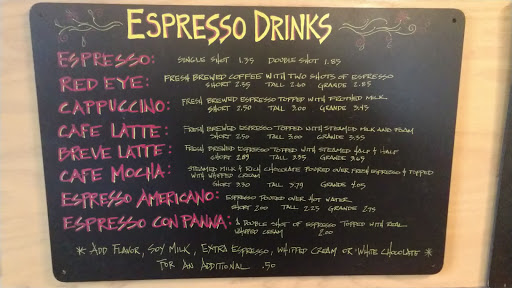 ESPRESSO DRINKS
ESPRESSO: SINGLE SHOT 1.35 DOUBLE SHOT 1.85
RED EYE: FRESH BREWED COFFEE WITH TWO SHOTS OF ESPRESSO
SHORT 2.35 TALL 2.60 GRANDE 2.85
CAPPUCCINO: FRESH BREWED ESPRESSO TOPPED WITH FROTHED MILK
SHORT 2.50 TALL 3.00 GRANDE 3.45
CAFE LATTE: FRESH BREWED ESPRESSO TOPPED WITH STEAMED MILK AND FOAM
SHORT 2.50 TALL 3.00 GRANDE 3.35
BREVE LATTE: FRESH BREWED ESPRESSO TOPPED WITH STEAMED HALF & HALF
SHORT 2.89 TALL 3.35 GRANDE 3.65
CAFE MOCHA: STEAMED MILK & RICH CHOCOLATE POURED OVER FRESH ESPRESSO & TOPPED
WITH WHIPPED CREAM
SHORT 3.30 TALL 3.79 GRANDE 4.05
ESPRESSO AMERICANO: ESPRESSO POURED OVER HOT WATER
SHORT 2.00 TALL 2.25 GRANDE 2.75
ESPRESSO CON PANNA: 1 DOUBLE SHOT OF ESPRESSO TOPPED WITH REAL
WHIPPED CREAM 2.00
* ADD FLAVOR, SOY MILK, EXTRA ESPRESSO, WHIPPED CREAM OR WHITE CHOCOLATE *
FOR AN ADDITIONAL .50